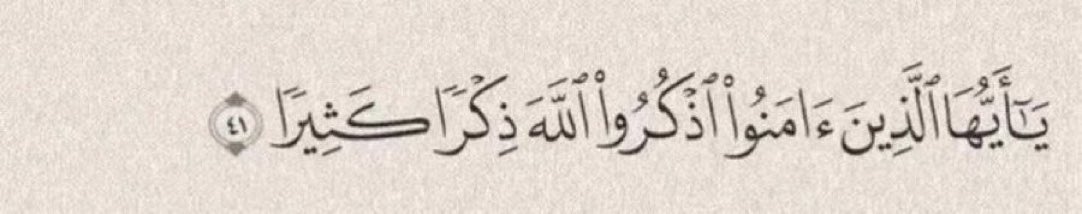 يَـٰٓأَيُّهَا ٱلَّذِينَ ءَامَنُوا۟ ٱذْكُرُوا۟ ٱللَّهَ ذِكْرًا كَثِيرًا ٤١